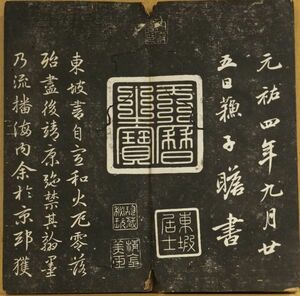 元祐四年九月廿
五日蘇子瞻書
東坡居士
東坡書自宣和火厄零落
殆盡後靖康弛禁其翰墨
乃流播海內余於京邸獲